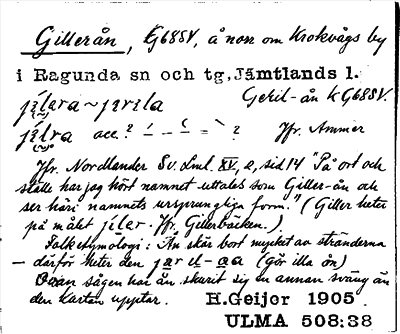 Gillerån, G68SV, å non om Krokvågs by
i Ragunda sn och tg, Jämtlands l.
Gekil-ån k G68SV.
acc. ? ? Jfr. Ammer
Jfr. Nordlander Sv. Lml. XV, 2, sid 14 "På ort och
ställe har jag hört namnet uttalas som Giller-ån och
ser häri namnets ursprungliga form." (Giller heter
på målet jíler. Jfr. Gillerbäcken.)
Folketymologi: Ån skär bort mycket av stränderna
— därför heter den (gör illa ån)
Ovan sågen har ån skurit sig en annan sväng än
den kartan upptar. H.Geijer 1905
ULMA 508:38